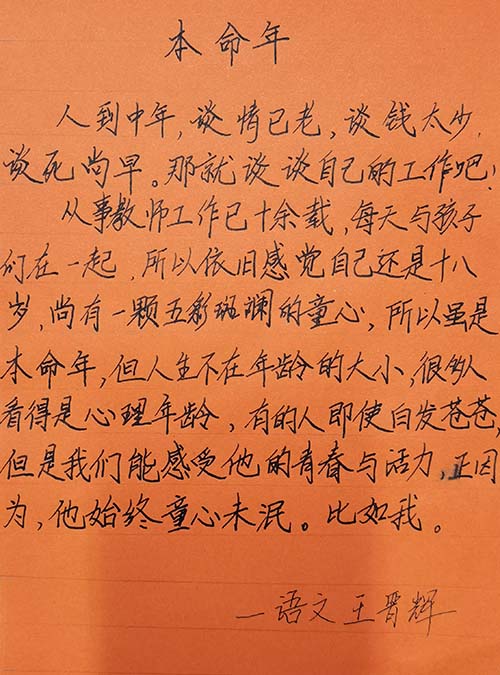 本命年
人到中年，谈情已老，谈钱太少，
谈死尚早。那就谈谈自己的工作吧！
从事教师工作已十余载，每天与孩子
们在一起，所以依旧感觉自己还是十八
岁，尚有一颗五彩斑斓的童心，所以虽是
本命年，但人生不在年龄的大小，很多人
看得是心理年龄，有的人即使白发苍苍，
但是我们能感受他的青春与活力，正因
为，他始终童心未泯。比如我。
—语文王晋辉